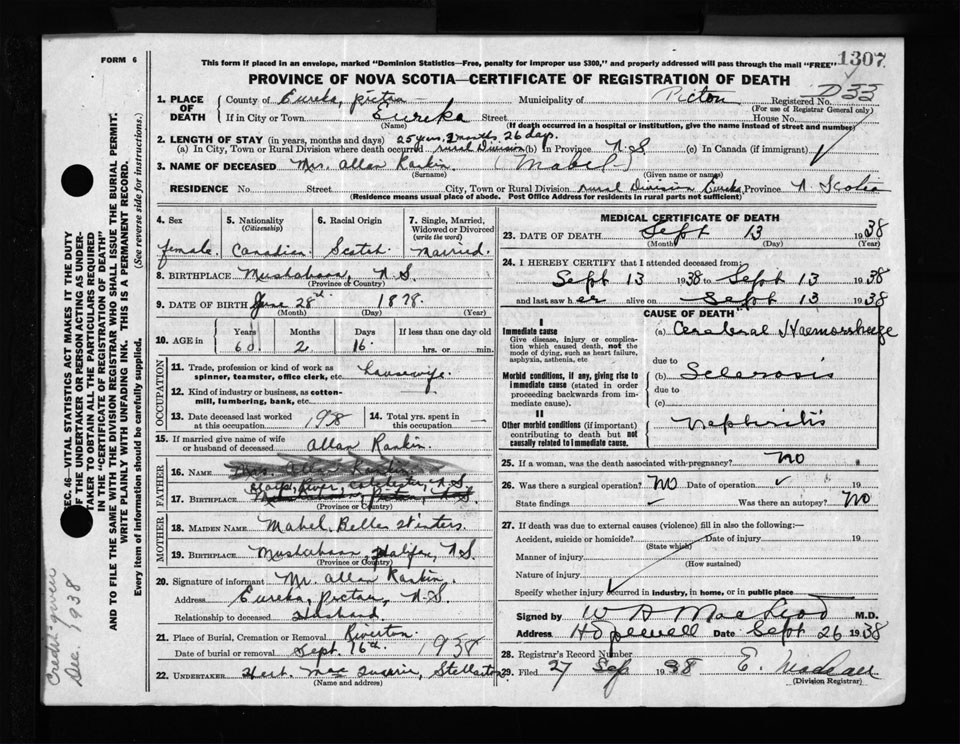 FORM 6
This form if placed in an envelope, marked "Dominion Statistics—Free, penalty for improper use $300," and properly addressed will pass through the mail "FREE"
1307
PROVINCE OF NOVA SCOTIA—CERTIFICATE OF REGISTRATION OF DEATH
1. PLACE OF DEATH
County of Eureka, Pictou Municipality of Pictou Registered No. D33
(For use of Registrar General only)
If in City or Town Eureka Street House No.
(Name) (If death occurred in a hospital or institution, give the name instead of street and number)
2. LENGTH OF STAY (in years, months and days) 25 years, 2 months, 26 days.
(a) In City, Town or Rural Division where death occurred rural Division (b) in Province N.S (c) In Canada (if immigrant)
3. NAME OF DECEASED Mrs. Allan Rankin (Mabel)
(Surname) (Given name or names)
RESIDENCE No. Street City, Town or Rural Division rural Division Eureka, Province N. Scotia
(Residence means usual place of abode. Post Office Address for residents in rural parts not sufficient)
4. Sex
female.
5. Nationality
(Citizenship)
Canadian.
6. Racial Origin
Scotch.
7. Single, Married, Widowed or Divorced
(write the word)
Married.
8. BIRTHPLACE N.S.
(Province or Country)
9. DATE OF BIRTH June 28th 1878.
(Month) (Day) (Year)
10. AGE in
Years Months Days If less than one day old
60 2 16 hrs. or min.
OCCUPATION
11. Trade, profession or kind of work as spinner, teamster, office clerk, etc. housewife.
12. Kind of industry or business, as cotton-mill, lumbering, bank, etc.
13. Date deceased last worked at this occupation 1938
14. Total yrs. spent in this occupation —
15. If married give name of wife or husband of deceased Allan Rankin.
FATHER
16. NAME Mrs. Allan Rankin
River, Colchester, N.S
17. BIRTHPLACE Pictou, N.S.
(Province or Country)
MOTHER
18. MAIDEN NAME Mabel Belle
19. BIRTHPLACE Halifax, N.S.
(Province or Country)
20. Signature of informant Mr. Allan Rankin.
Address Eureka, Pictou, N.S.
Relationship to deceased Husband
21. Place of Burial, Cremation or Removal Riverton.
Date of burial or removal Sept. 16th. 1938
22. UNDERTAKER Stellarton.
(Name and address)
MEDICAL CERTIFICATE OF DEATH
23. DATE OF DEATH Sept 13 1938
(Month) (Day) (Year)
24. I HEREBY CERTIFY that I attended deceased from
Sept 13 1938 to Sept 13 1938
and last saw her alive on Sept 13 1938
CAUSE OF DEATH
I
Immediate cause
Give disease, injury or complication which caused death, not the mode of dying, such as heart failure, asphyxia, asthenia, etc
(a) Cerebral Haemorrhage
due to
Morbid conditions, if any, giving rise to immediate cause (stated in order proceeding backwards from immediate cause).
(b) Sclerosis
due to
(c)
II
Other morbid conditions (if important) contributing to death but not causally related to immediate cause.
Nephritis
25. If a woman, was the death associated with pregnancy? No
26. Was there a surgical operation? No Date of operation
State findings Was there an autopsy? No
27. If death was due to external causes (violence) fill in also the following:—
Accident, suicide or homicide? Date of injury 19
(State which)
Manner of injury
(How sustained)
Nature of injury
Specify whether injury occurred in industry, in home, or in public place
Signed by W A MacLeod M.D.
Address Hopewell Date Sept 26 1938
28. Registrar's Record Number
29. Filed 27 Sep 1938 E.
(Division Registrar)
SEC. 46—VITAL STATISTICS ACT MAKES IT THE DUTY
OF THE UNDERTAKER OR PERSON ACTING AS UNDERTAKER TO OBTAIN ALL THE PARTICULARS REQUIRED
IN THE "CERTIFICATE OF REGISTRATION OF DEATH"
AND TO FILE THE SAME WITH THE DIVISION REGISTRAR WHO SHALL ISSUE THE BURIAL PERMIT.
WRITE PLAINLY WITH UNFADING INK. THIS IS A PERMANENT RECORD.
Every item of information should be carefully supplied. (See reverse side for instructions.)
Credit given
Dec. 1938